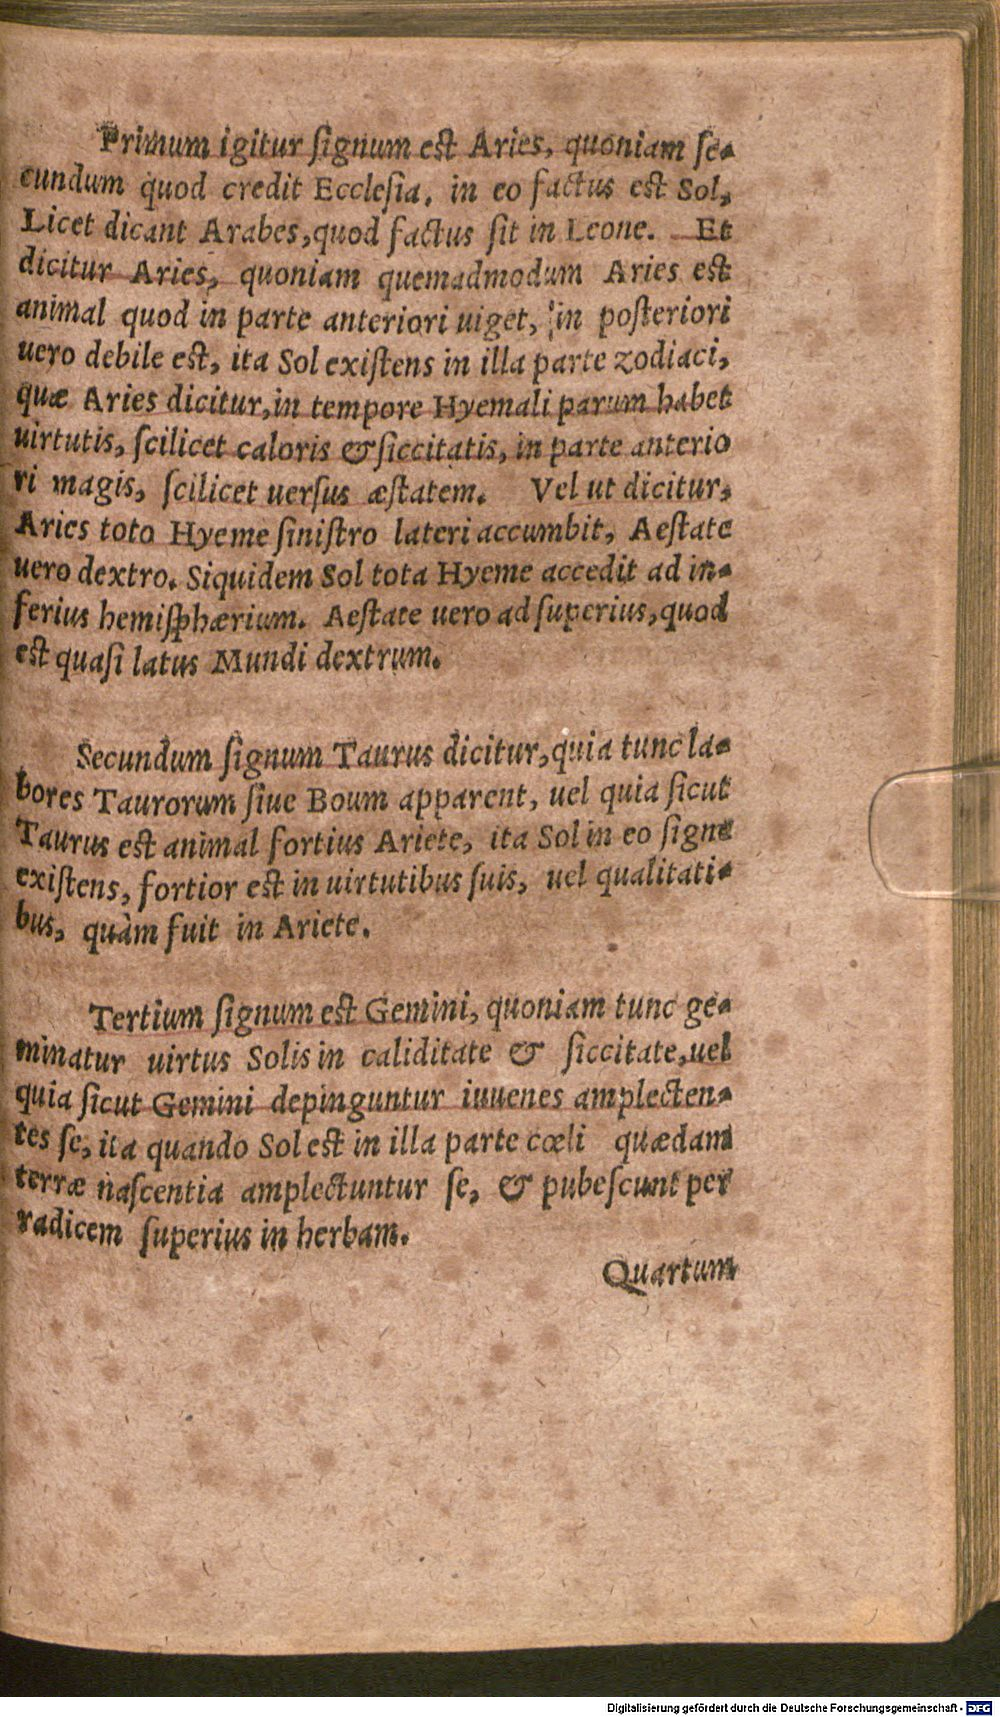 Primum igitur ſignum eſt Aries, quoniam ſe-
cundum quod credit Eccleſia, in eo factus est Sol,
Licet dicant Arabes, quod factus ſit in Leone. Et
dicitur Aries, quoniam quemadmodum Aries eſt
animal quod in parte anteriori uiget, in poſteriori
uero debile eſt, ita Sol exiſtens in illa parte zodiaci,
quæ Aries dicitur, in tempore Hyemali parum habet
uirtutis, ſcilicet caloris & ſiccitatis, in parte anterio
ri magis, ſcilicet uerſus æſtatem. Vel ut dicitur,
Aries toto Hyeme ſiniſtro lateri accumbit, Aeſtate
uero dextro. Siquidem Sol tota Hyeme accedit ad in-
ferius hemiſphærium. Aeſtate uero ad ſuperius, quod
eſt quaſi latus Mundi dextrum.
Secundum ſignum Taurus dicitur, quia tunc la-
bores Taurorum ſiue Boum apparent, uel quia ſicut
Taurus eſt animal fortius Ariete, ita Sol in eo ſigno
exiſtens, fortior eſt in uirtutibus ſuis, uel qualitati-
bus, quàm fuit in Ariete.
Tertium ſignum eſt Gemini, quoniam tunc ge-
minatur uirtus Solis in caliditate & ſiccitate, uel
quia ſicut Gemini depinguntur iuuenes amplecten-
tes ſe, ita quando Sol eſt in illa parte cœli quædam
terræ naſcentia amplectuntur ſe, & pubeſcunt per
radicem ſuperius in herbam.
Quartum
Digitalisierung gefördert durch die Deutsche Forschungsgemeinschaft - DFG